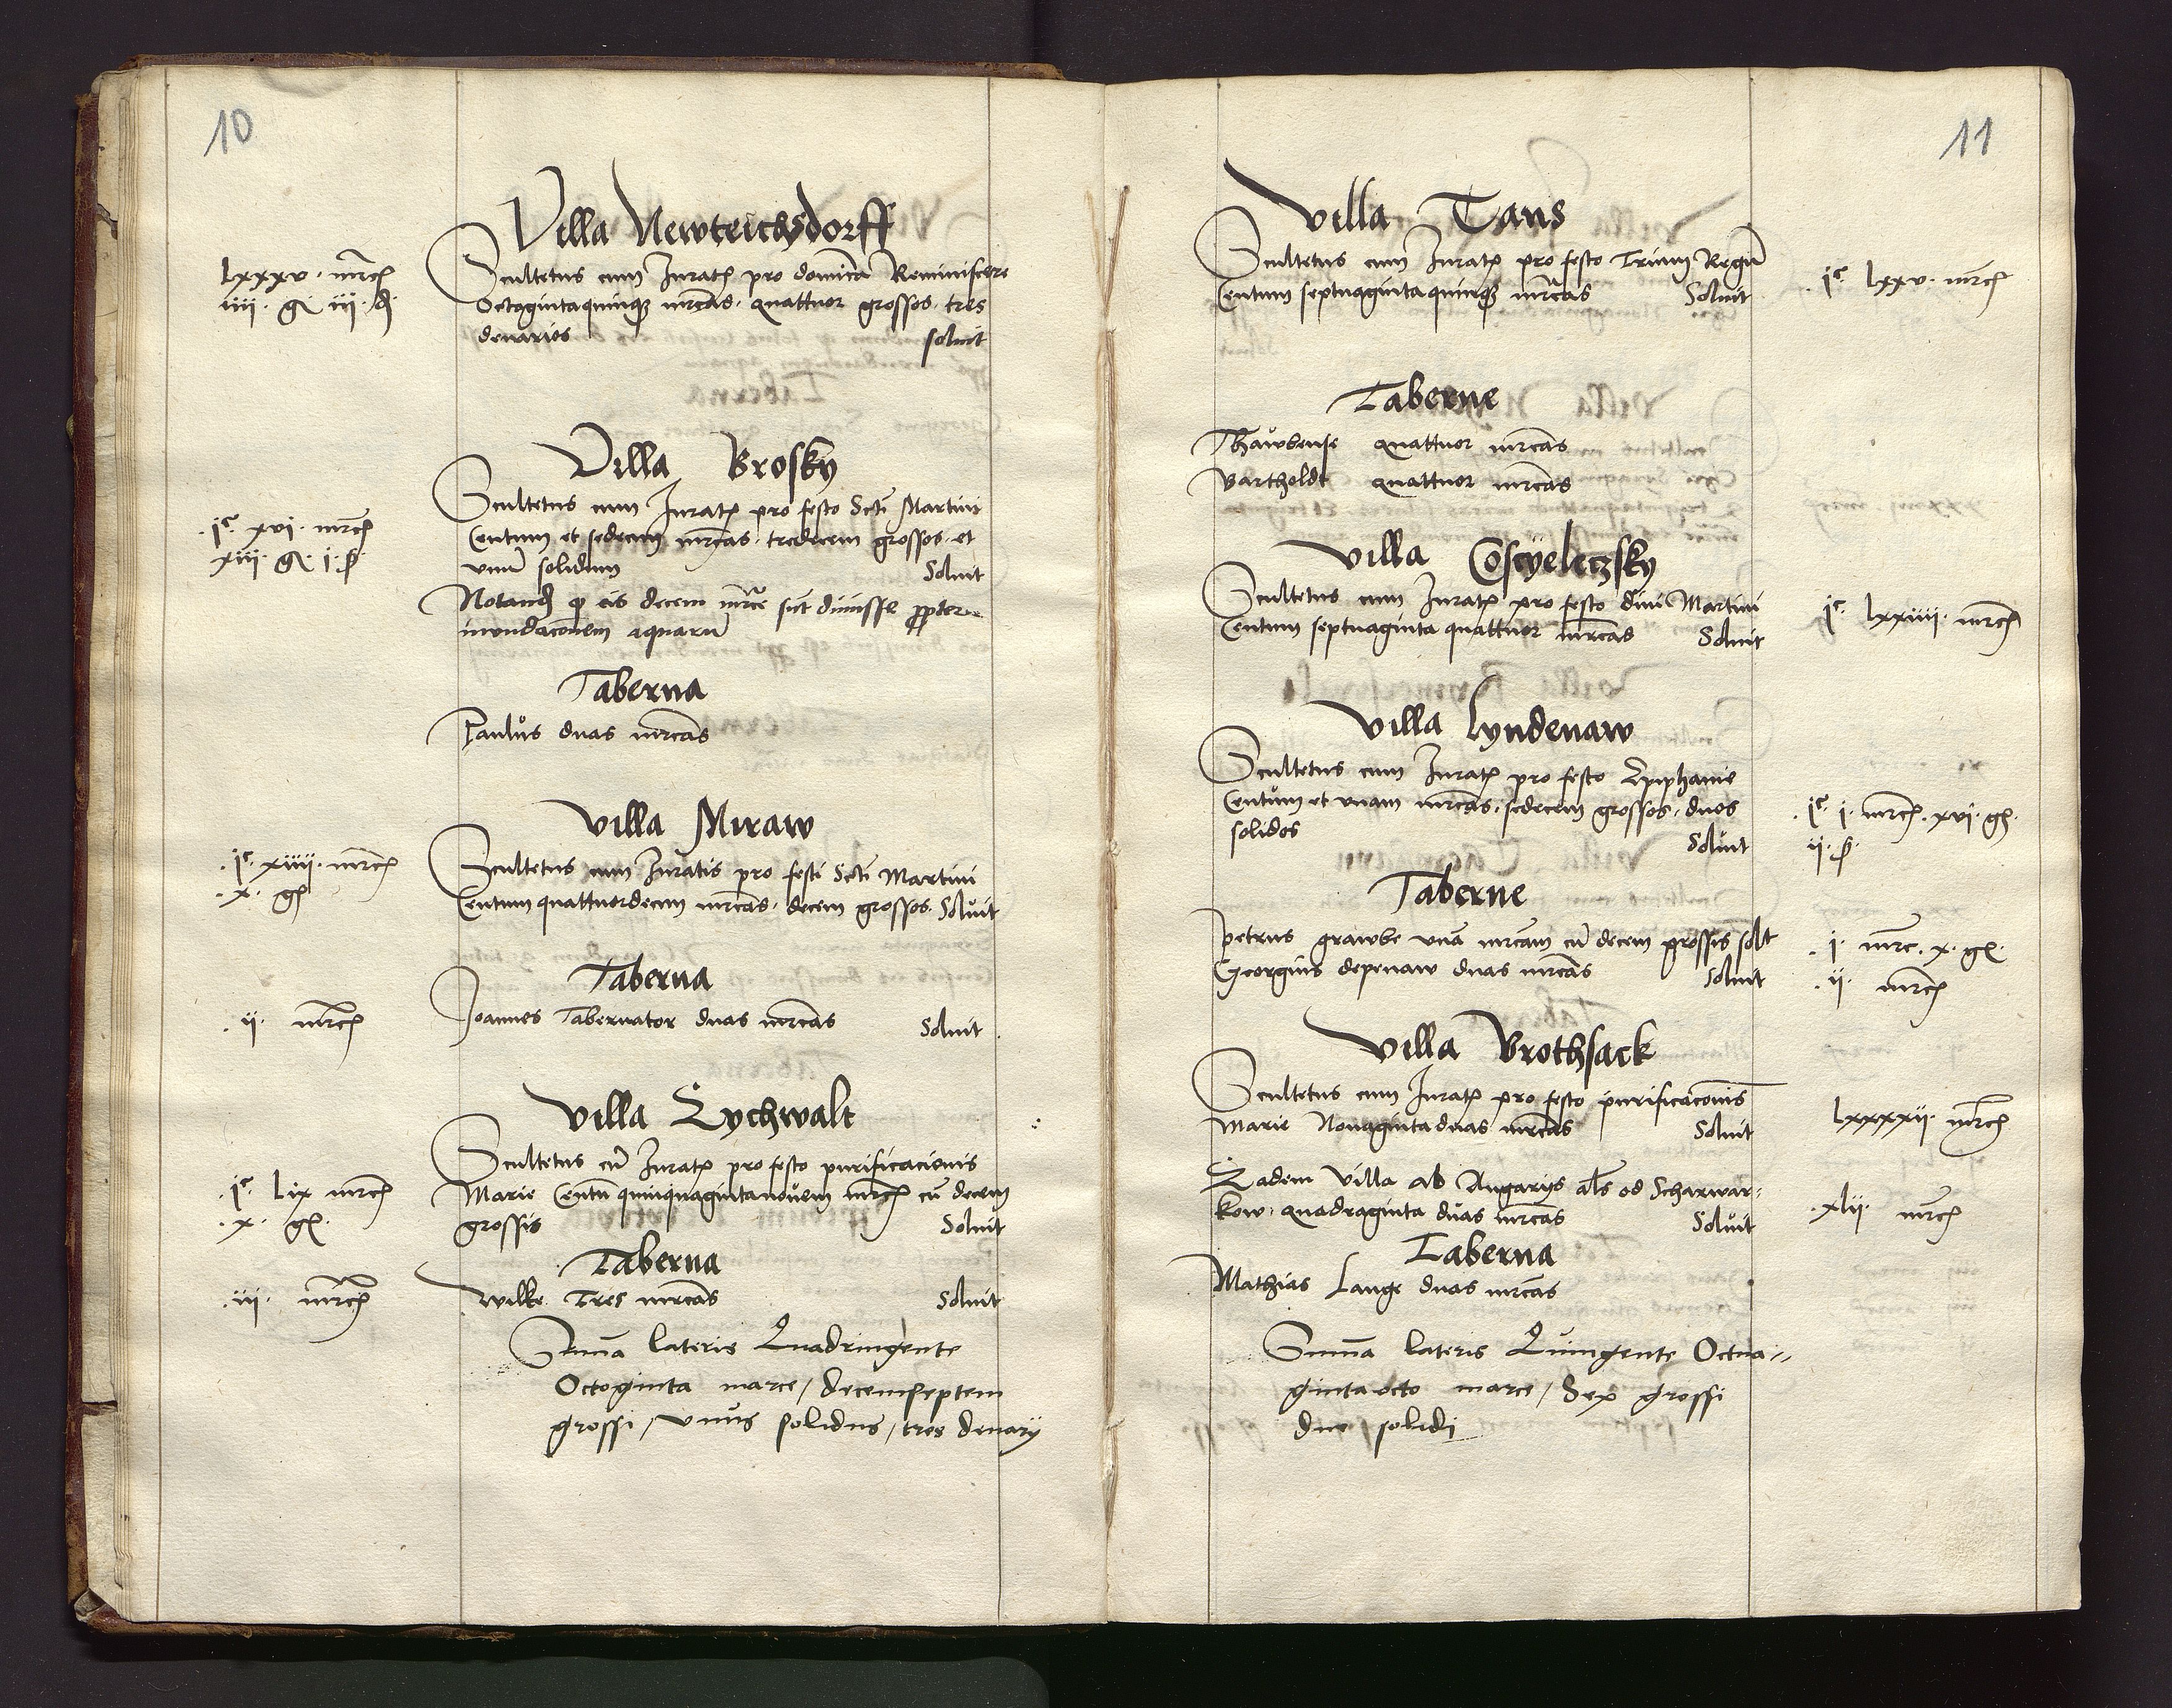 10
Villa Newteichsdorff
lxxxv. mrcs
iiii. gr. iii. d.
Scultetus cum Juratis pro dominica Reminiscere
Octagintaquinque mrcas. quattuor grossos. tres
denarios soluit
Villa Brosky
.jc xvi. mrcs
xiii. gr. i. s.
Scultetus cum Juratis pro festo Scti Martini
Centum et sedecim mrcas. tredecim grossos. et
vnum solidum Soluit
Notand quod eis decem mrce sunt dimisse propter
inundaconem aquarum
Taberna
Paulus duas mrcas
Villa Miraw
.jc xiiii. mrcs
.x. gs
Scultetus cum Juratis pro festi Scti Martini
Centum quattuordecim mrcas. decem grossos. Soluit
Taberna
.ii. mrcs
Joannes Tabernator duas mrcas Soluit
Villa Lychwalt
.jc lix mrcs
.x. gr.
Scultetus cum Juratis pro festo purificacionis
Marie Centum quinquagintanouem mrcs cum decem
grossis Soluit
Taberna
.iii. mrcs
Wilke Tres mrcas Soluit
Summa lateris Quadringente
Octoginta marce / decemseptem
grossi / vnus solidus / tres denarij
11
Villa Tans
Scultetus cum Juratis pro festo Trium Regum
Centum septuagintaquinque mrcas Soluit
.jc lxxv. mrcs
Taberne
Thawbense quattuor mrcas
Bartholdt quattuor mrcas
Villa Coscyeleczsky
Scultetus cum Juratis pro festo diui Martini
Centum septuaginta quattuor mrcas Soluit
jc. lxxiiii. mrcs
Villa Lyndenaw
Scultetus cum Juratis pro festo Epiphanie
Centum et vnam mrcas. sedecim grossos. duos
solidos Soluit
.jc i. mrcs. xvi. gs.
ii. s.
Taberne
Petrus grawbe vnam mrcam cum decem grossis solt
.i. mrc. x. gr.
Georgius depenaw duas mrcas Soluit
.ii. mrcs
Villa Brothsack
Scultetus cum Juratis pro festo purificaconis
Marie Nonagintaduas mrcas Soluit
lxxxxii. mrcs
Eadem Villa ab Angarijs als od Scharwar-
kow. quadraginta duas mrcas Soluit
.xlii. mrcs
Taberna
Mathias Lange duas mrcas
Summa lateris Quingente Octua-
ginta octo marce / Sex grossi
duo solidi